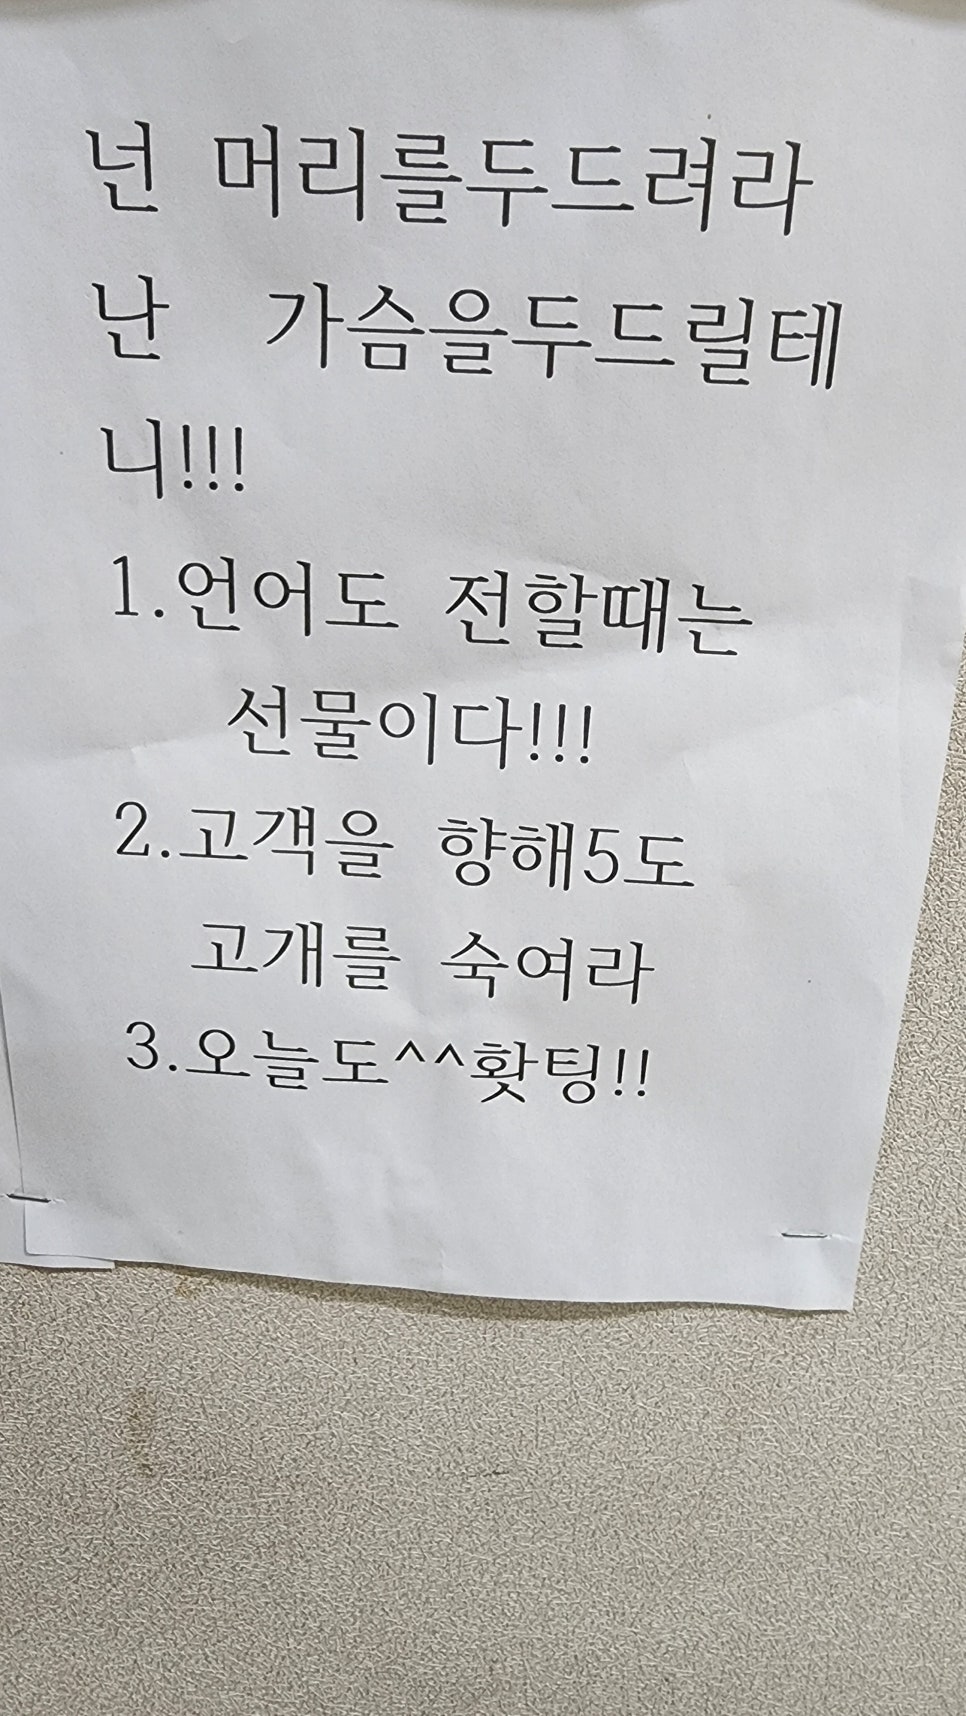 넌 머리를두드려라
난 가슴을두드릴테
니!!!
1.언어도 전할때는
선물이다!!!
2.고객을 향해5도
고개를 숙여라
3.오늘도^^홧팅!!